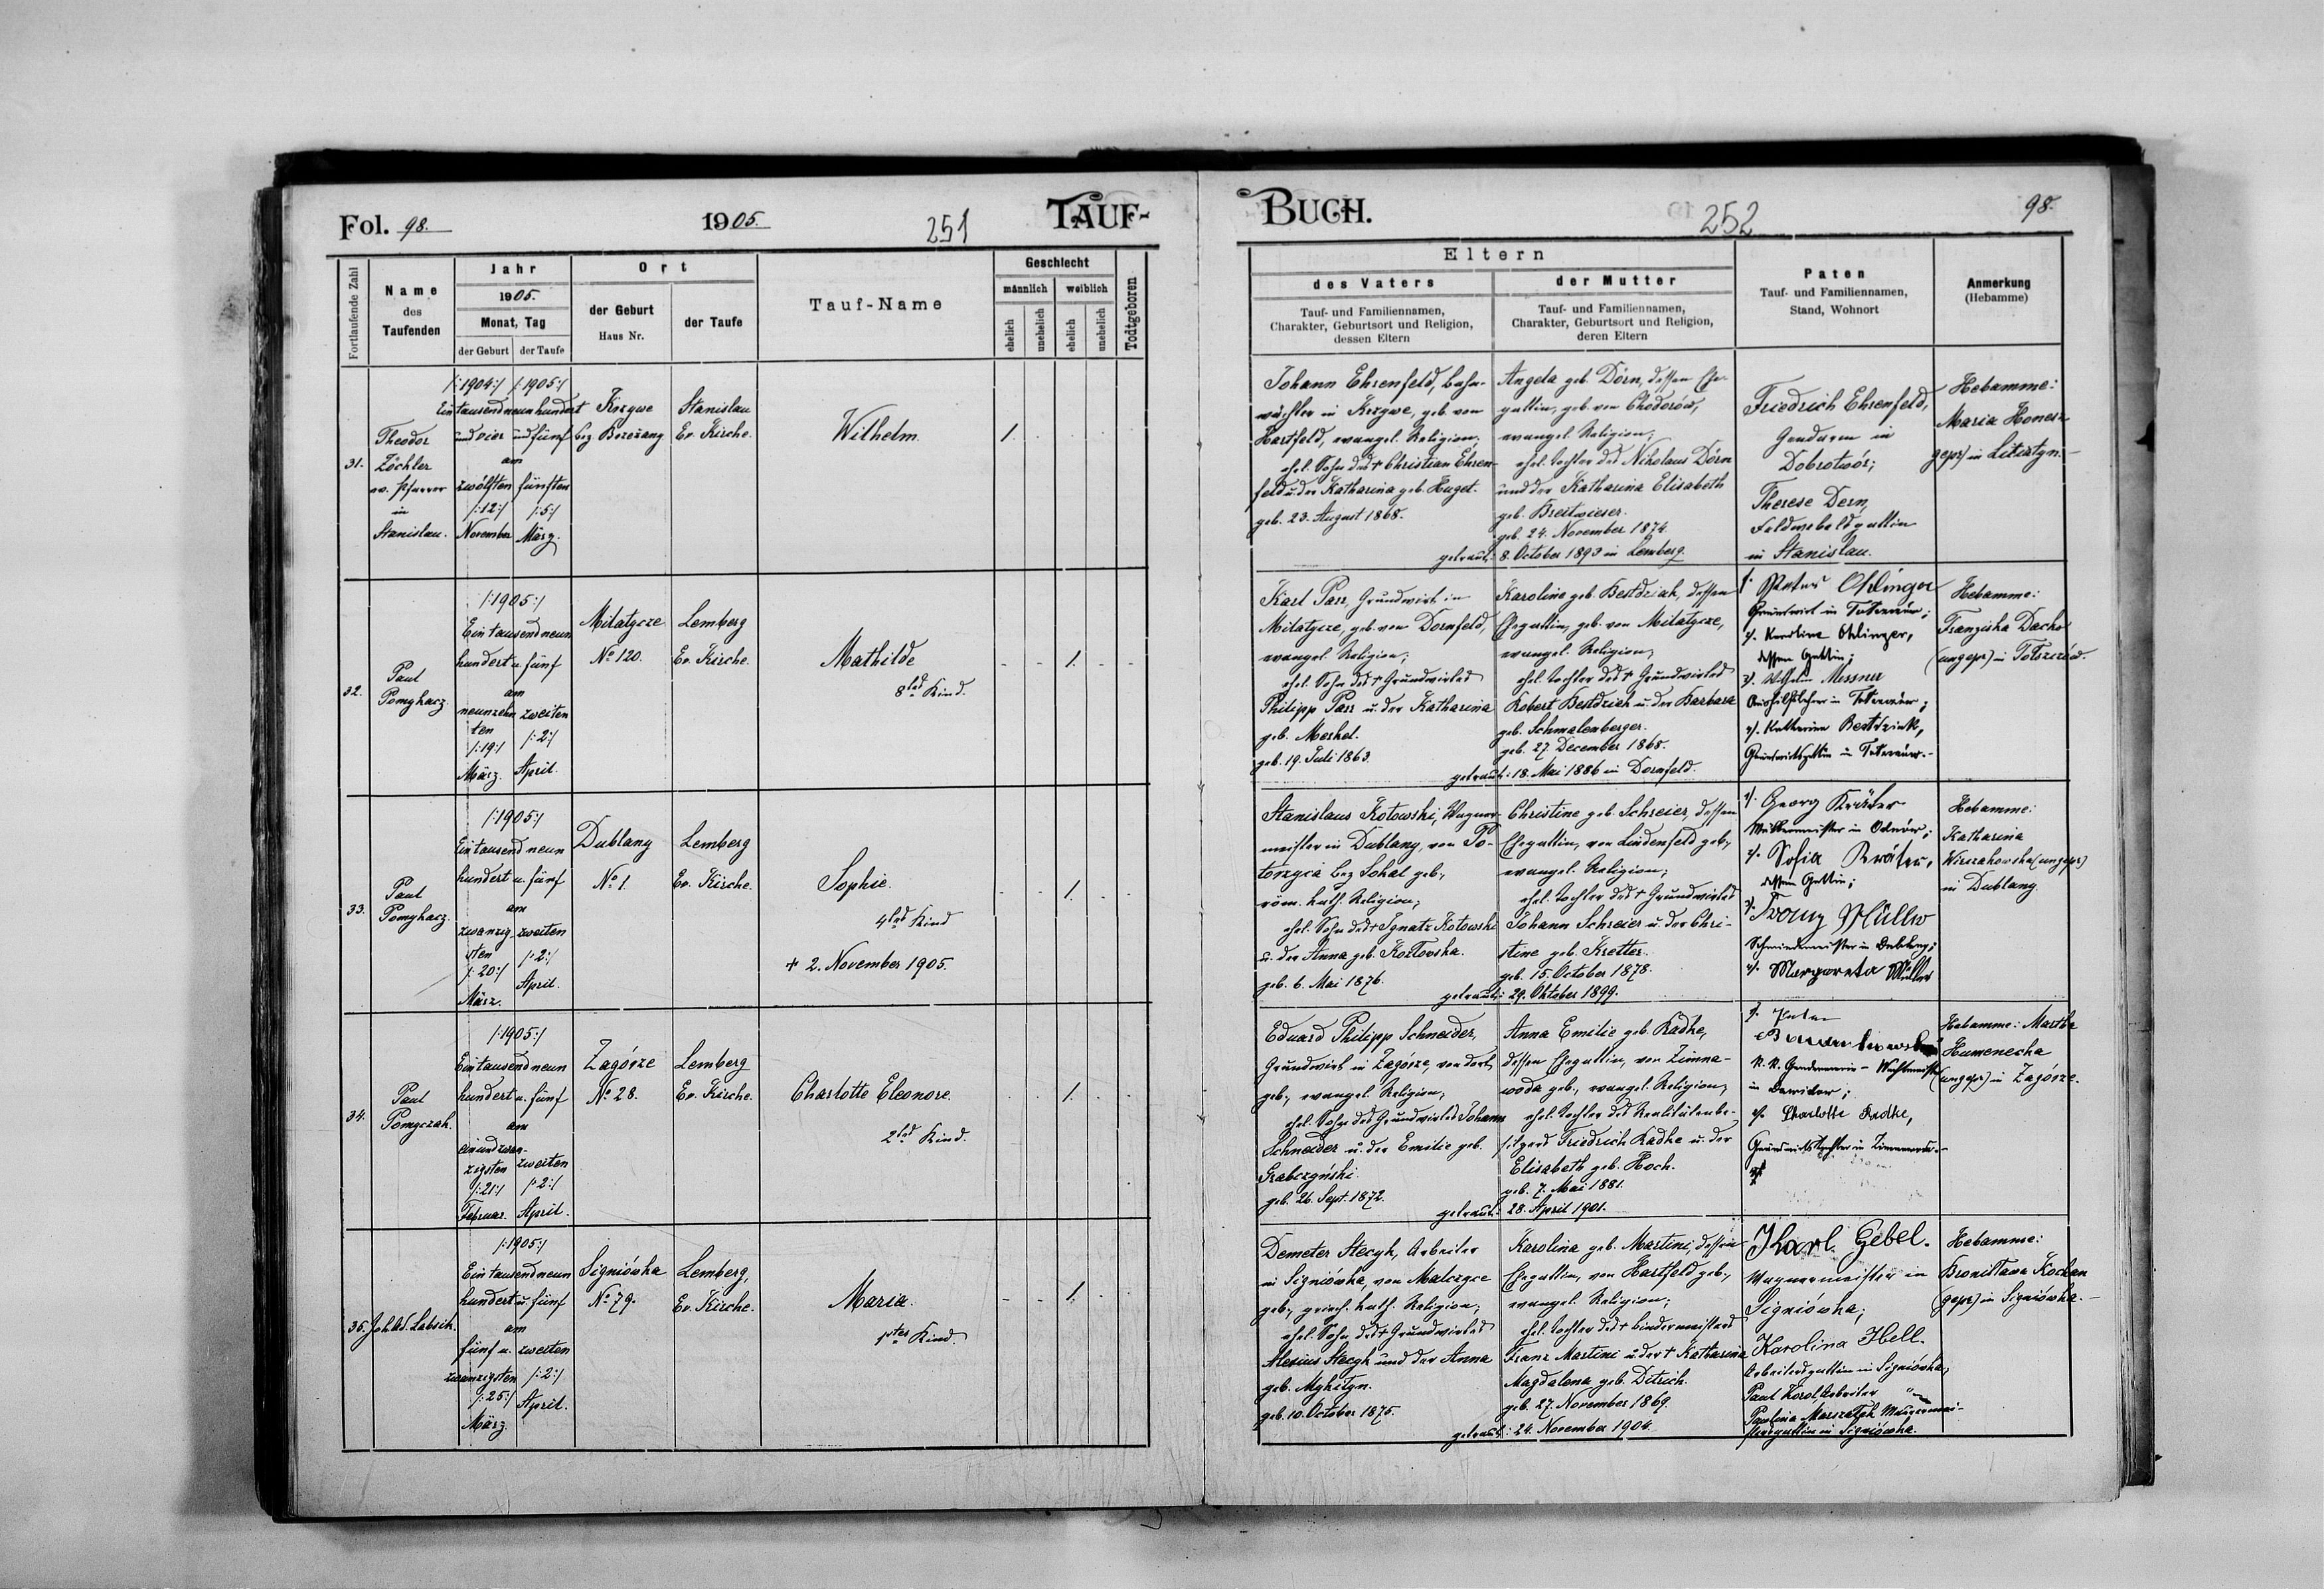 Fol. 98.
1905.
251
TAUF-
Fortlaufende Zahl
Name
des
Taufenden
Jahr
1905.
Monat, Tag
der Geburt
der Taufe
Ort
der Geburt
Haus Nr.
der Taufe
Tauf-Name
Geschlecht
männlich
weiblich
ehelich
unehelich
ehelich
unehelich
Todtgeboren
31.
Theodor
Zöckler
ev. Pfarrer
in
Stanislau.
/:1904:/ /:1905:/
Ein tausend neun hundert
und vier und fünf
am
zwölften fünften
/:12:/ /:5:/
November März.
bez Brzeżany
Stanislau
Ev. Kirche.
Wilhelm.
1.
32.
Paul
/:1905:/
Ein tausend neun
hundert u. fünf
am
neunzehn zweiten
ten
/:19:/ /:2:/
März. April.
Mitatycze
No 120.
Lemberg
Ev. Kirche.
Mathilde
8tes Kind.
1.
33.
Paul
/:1905:/
Ein tausend neun
hundert u. fünf
am
zwanzig- zweiten
sten /:2:/
/:20:/ April.
März.
Dublany
No 1.
Lemberg
Ev. Kirche.
Sophie.
4tes Kind
+ 2. November 1905.
1.
34.
Paul
/:1905:/
Ein tausend neun
hundert u. fünf
am
einundzwan-
zigsten zweiten
/:21:/ /:2:/
Februar. April.
Zagórze
No 28.
Lemberg
Ev. Kirche.
Charlotte Eleonore.
2tes Kind.
1.
35.
/:1905:/
Ein tausend neun
hundert u. fünf
am
fünf u. zweiten
zwanzigsten /:2:/
/:25:/ April.
März.
Signiówka
No 79.
Lemberg,
Ev. Kirche.
Maria.
1tes Kind
1.
BUCH.
252
98.
Eltern
des Vaters
Tauf- und Familiennamen,
Charakter, Geburtsort und Religion,
dessen Eltern
der Mutter
Tauf- und Familiennamen,
Charakter, Geburtsort und Religion,
deren Eltern
Paten
Tauf- und Familiennamen,
Stand, Wohnort
Anmerkung
(Hebamme)
Johann Ehrenfeld, Bahn-
wächter in geb. von
Hartfeld, evangel. Religion,
ehel. Sohn des + Christian Ehren-
feld u. der Katharina geb. Huget.
geb. 23. August 1868.
Angela geb. Dörn, dessen Ehe-
gattin, geb. von Chodorów,
evangel. Religion;
ehel. Tochter des Nikolaus Dörn
und der Katharina Elisabeth
geb. Breitwieser.
geb. 24. November 1874.
getraut: 8. October 1893 in Lemberg.
Friedrich Ehrenfeld,
Gendarm in
Dobrotwór;
Therese Dern,
Feldwebelsgattin
in Stanislau.
Hebamme:
Maria
(gepr) in
Karl Parr, Grundwirt in
Mitatycze, geb. von Dornfeld,
evangel. Religion;
ehel. Sohn des + Grundwirtes
Philipp Parr u. der Katharina
geb. Merkel.
geb. 19. Juli 1863.
Karolina geb. Bestdziak, dessen
Ehegattin, geb. von Mitatycze,
evangel. Religion,
ehel. Tochter des + Grundwirtes
Robert Bestdziak u. der Barbara
geb. Schmalenberger.
geb. 27. December 1868.
getraut: 18. Mai 1886 in Dornfeld.
1. Peter Ohlinger
Grundwirt in
2). Karoline Ohlinger,
dessen Gattin;
3). Messner
4). Katharina Bestdziak,
Hebamme:
Franziska
(ungepr) in
Stanislaus Kotowski, Wagner-
meister in Dublany, von To-
bez Sokal geb.,
röm. kath. Religion;
ehel. Sohn des + Ignatz Kotowski
u. der Anna geb. Kozłowska.
geb. 6. Mai 1876.
Christine geb. Schreier, dessen
Ehegattin, von Lindenfeld geb.,
evangel. Religion;
ehel. Tochter des + Grundwirtes
Johann Schreier u. der Chri-
stine geb. Kretter.
geb. 15. October 1878.
getraut: 29. Oktober 1899.
1). Georg Kräter
2). Sofia Kräter,
dessen Gattin;
3). Franz Müller
Schmiedemeister in Dublany;
4). Margareta Müller
Hebamme:
Katharina
(ungepr)
in Dublany.
Eduard Philipp Schneider,
Grundwirt in Zagórze, von dort
geb., evangel. Religion,
ehel. Sohn des Grundwirtes Johann
Schneider u. der Emilie geb.
Grabczyński.
geb. 26. Sept. 1872.
Anna Emilie geb. Radke,
dessen Ehegattin, von Zimna-
woda geb., evangel. Religion,
ehel. Tochter des Realitätenbe-
sitzers Friedrich Radke u. der
Elisabeth geb. Hoch.
geb. 7. Mai 1881.
getraut: 28. April 1901.
K. K. Gendarmerie - Wachtmeister
2). Charlotte Radke,
Hebamme: Martha
Humenecka
(ungepr) in Zagórze.
Demeter Stecyk, Arbeiter
in Signiówka, von Malczyce
geb., griech. kath. Religion;
ehel. Sohn des + Grundwirtes
Alexius Stecyk und der Anna
geb. Mykityn.
geb. 10. October 1875.
Karolina geb. Martini, dessen
Ehegattin, von Hartfeld geb.,
evangel. Religion;
ehel. Tochter des + Bindermeisters
Franz Martini u. der + Katharina
Magdalena geb. Ditrich.
geb. 27. November 1869.
getraut: 24. November 1904.
Karl Gebel.
Wagnermeister in
Signiówka;
Karolina Hell.
Arbeitersgattin in Signiówka,
Paul Korol, Arbeiter
Paulina
in Signiówka.
Hebamme:
Bronisława Kochan
(gepr) in Signiówka.